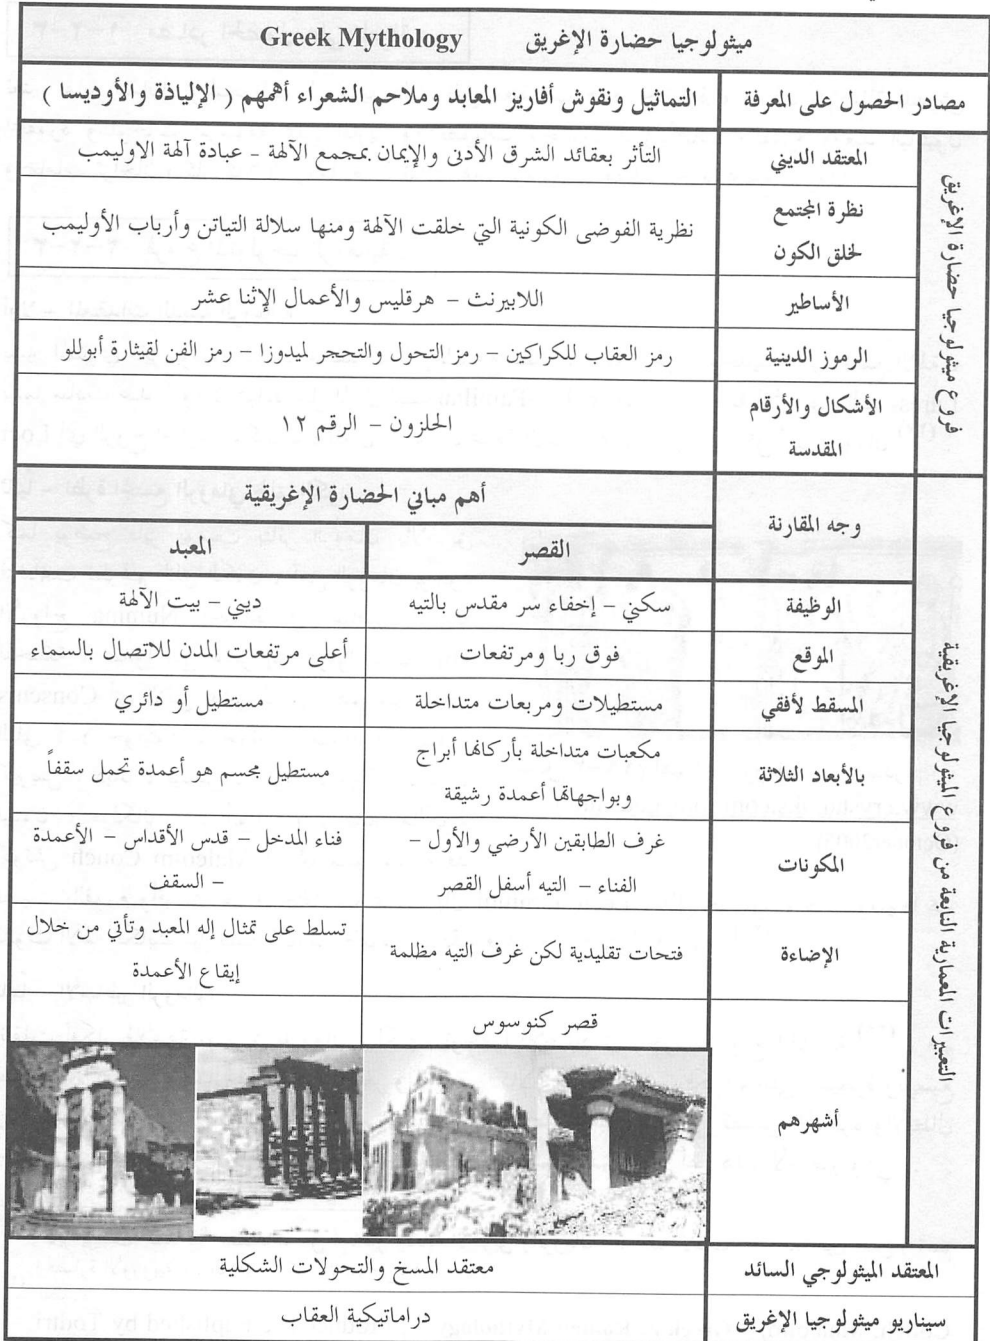 ميثولوجيا حضارة الإغريق Greek Mythology
مصادر الحصول على المعرفة
التماثيل ونقوش أفاريز المعابد وملاحم الشعراء أهمهم ( الإلياذة والأوديسا )
فروع ميثولوجيا حضارة الإغريق
المعتقد الديني
التأثر بعقائد الشرق الأدنى والإيمان بمجمع الآلهة - عبادة آلهة الاوليمب
نظرة المجتمع
لخلق الكون
نظرية الفوضى الكونية التي خلقت الآلهة ومنها سلالة التياتن وأرباب الأوليمب
الأساطير
اللابيرنث – هرقليس والأعمال الإثنا عشر
الرموز الدينية
رمز العقاب للكراكين – رمز التحول والتحجر لميدوزا – رمز الفن لقيثارة أبوللو
الأشكال والأرقام
المقدسة
الحلزون – الرقم ١٢
التعبيرات المعمارية النابعة من فروع الميثولوجيا الإغريقية
وجه المقارنة
أهم مباني الحضارة الإغريقية
القصر
المعبد
الوظيفة
سكني – إخفاء سر مقدس بالتيه
ديني – بيت الآلهة
الموقع
فوق ربا ومرتفعات
أعلى مرتفعات المدن للاتصال بالسماء
المسقط لأفقي
مستطيلات ومربعات متداخلة
مستطيل أو دائري
بالأبعاد الثلاثة
مكعبات متداخلة بأركانها أبراج
وبواجهاتها أعمدة رشيقة
مستطيل مجسم هو أعمدة تحمل سقفاً
المكونات
غرف الطابقين الأرضي والأول –
الفناء – التيه أسفل القصر
فناء المدخل – قدس الأقداس – الأعمدة
– السقف
الإضاءة
فتحات تقليدية لكن غرف التيه مظلمة
تسلط على تمثال إله المعبد وتأتي من خلال
إيقاع الأعمدة
أشهرهم
قصر كنوسوس
المعتقد الميثولوجي السائد
معتقد المسخ والتحولات الشكلية
سيناريو ميثولوجيا الإغريق
دراماتيكية العقاب